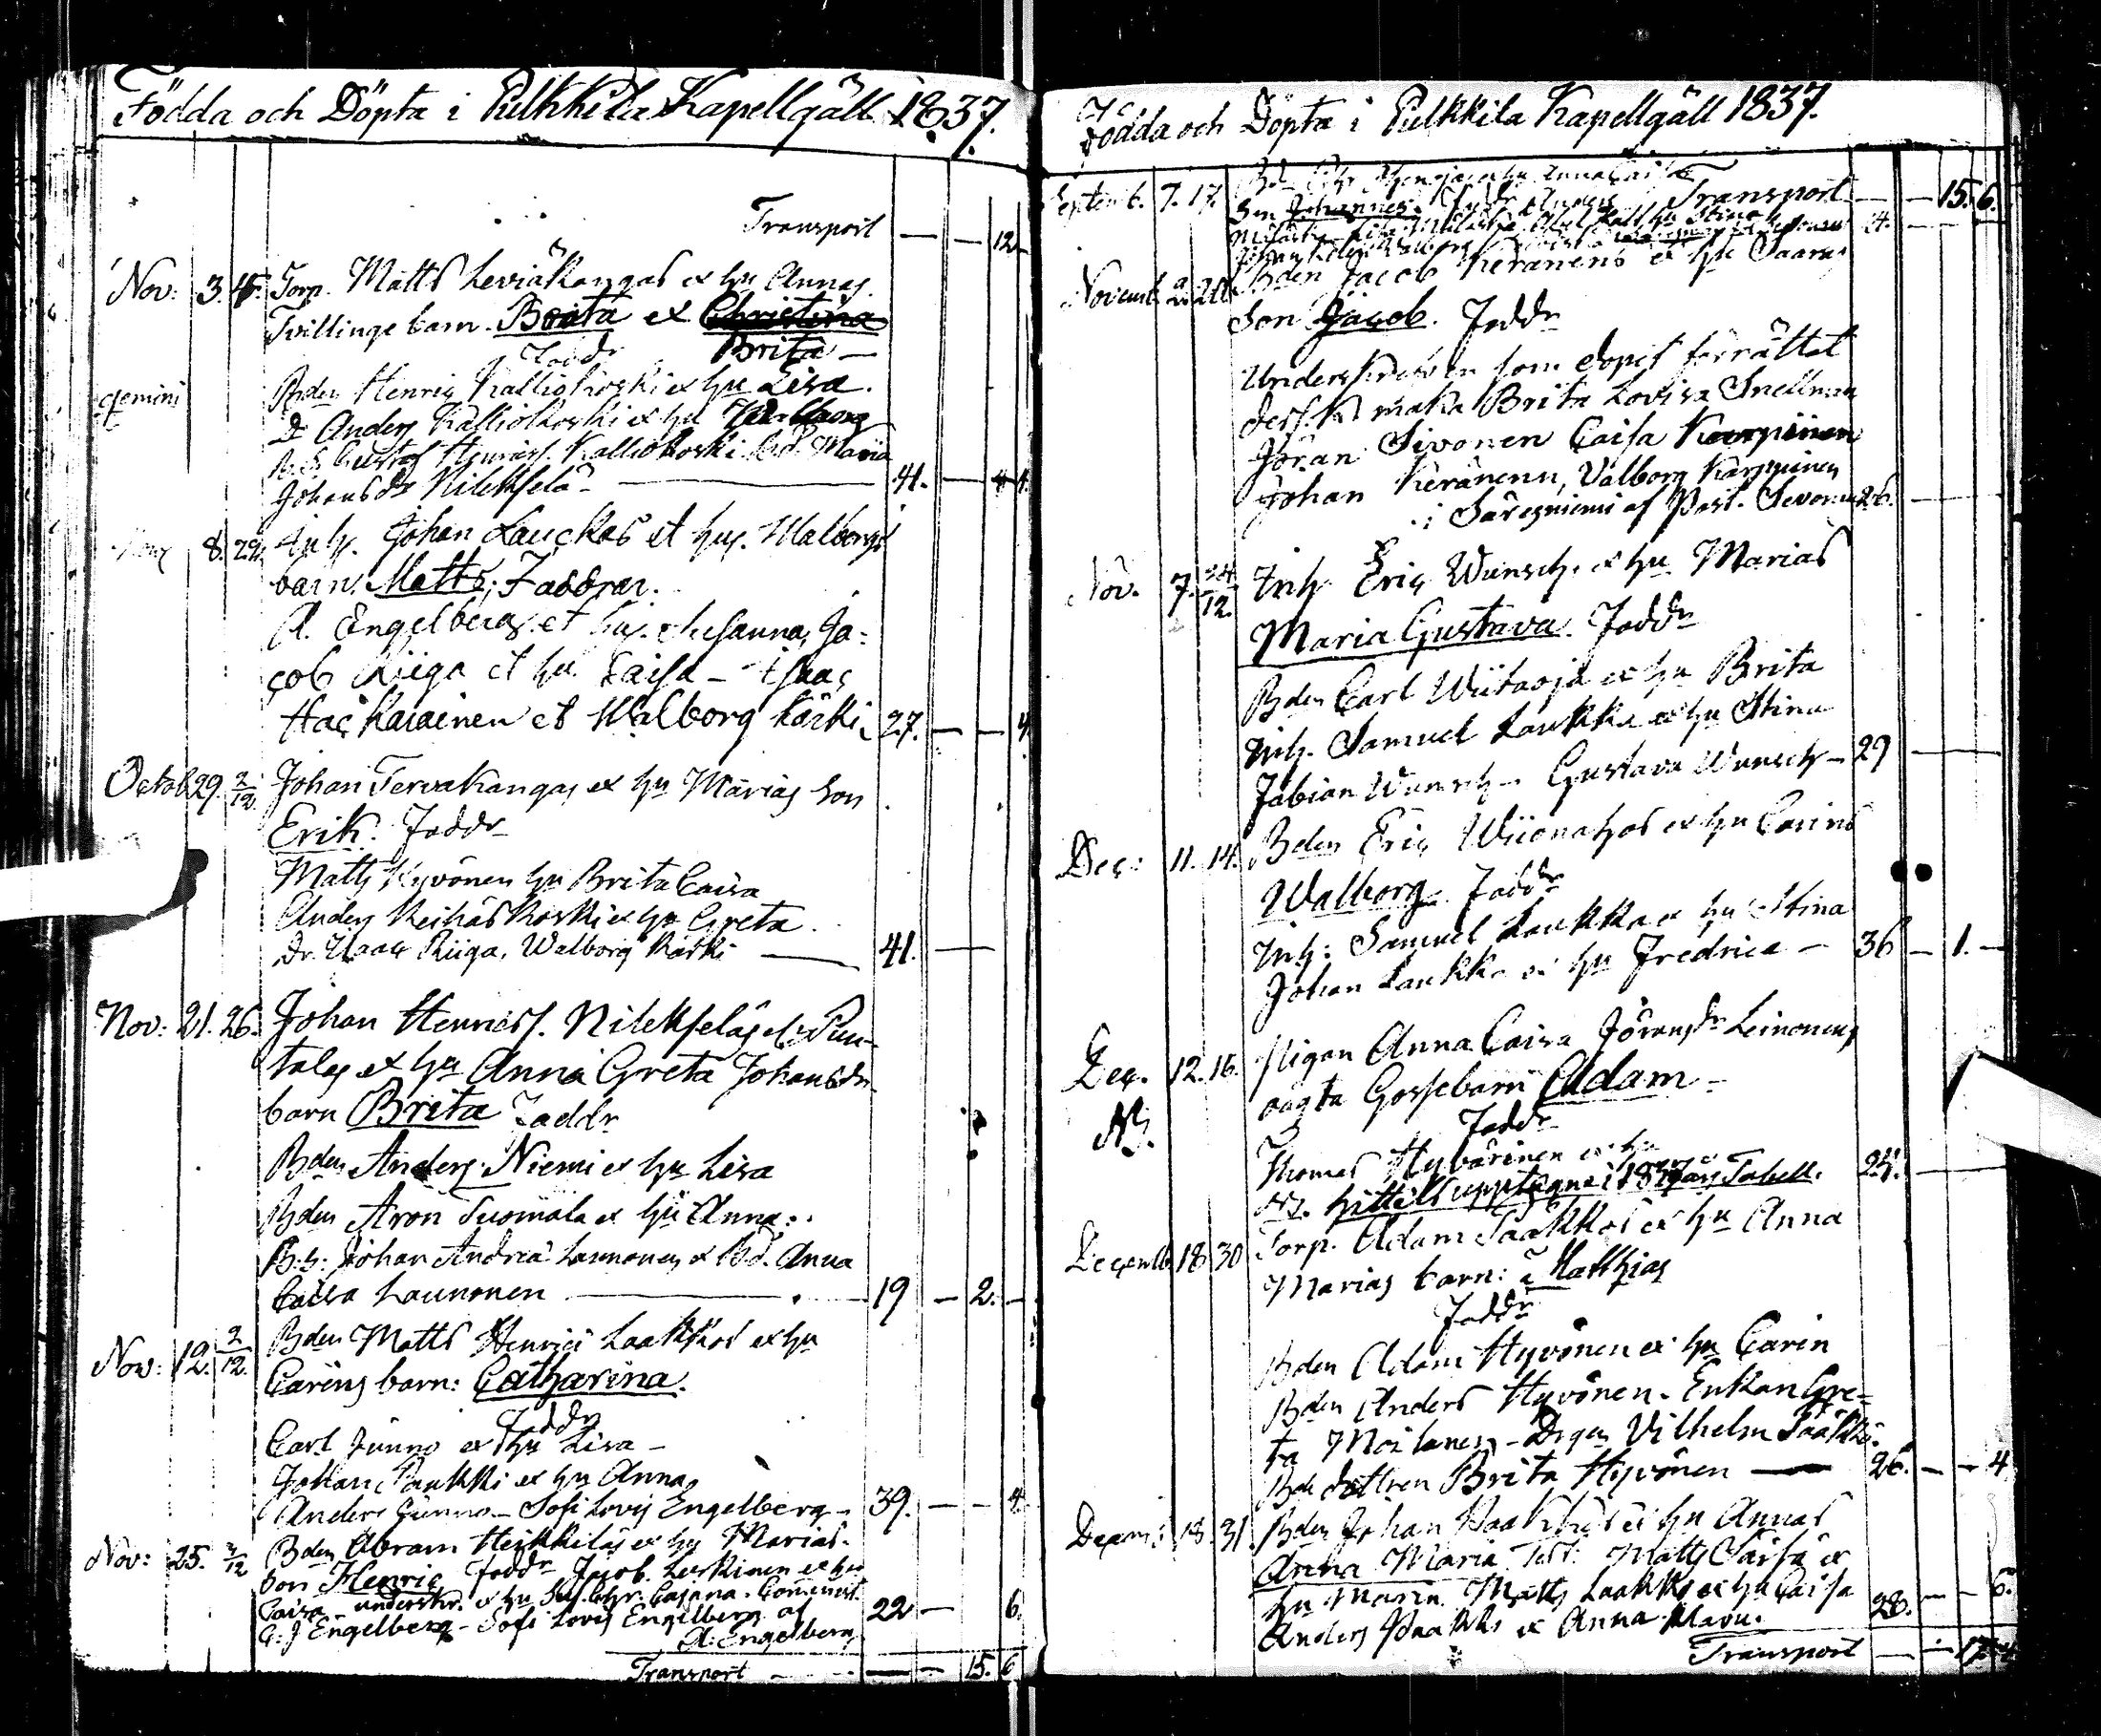 Födda och Döpta i Pulkkila Kapellgäll 1837.
Transport — — 12 —
Nov: 3. 15. Torp. Matts Leviäkangas et hu Annas
Tvillinge barn. Beata et Christina
Faddr Brita —
gemini Bden Henric Kalliokoski et hu Lisa.
Dr Anders Kalliokoski et hu Walborg
B.S. Gustaf Henricss. Kalliokoski. Bd. Maria
Johansdr Nilekselä — 41. —
8. 29. Inh. Johan Lauckas et hus. Walborgs
barn: Matts; Faddrar.
A. Engelberg et hus. Susanna, Ja-
cob Riiga et hu Caisa — Isaac
Hackarainen et Walborg Kärki 27. — — 4.
Octob. 29. 2/12 Johan Tervakangas et hu Marias Son
Erik. Faddr
Matts Hyvönen hu Brita Caisa
Anders Keihäskoski et hu Greta.
Dr. Isaac Riiga, Walborg Kärki — 41. —
Nov: 21. 26. Johan Henricss. Nilekseläs
et hu Anna Greta Johansdr
barn Brita Faddr
Bden Anders Niemi et hu Lisa
Bden Aron Tuomala et hu Anna.
B.S. Johan Andreä Launonen et Bd. Anna
Caisa Launonen — 19 — 2. —
Nov: 12. 2/12. Bden Matts Henrici Laakkos et hu
Carins barn: Catharina.
Faddr
Carl Junno et hu Lisa —
Johan Paukki et hu Anna,
Anders Junno — Sofi Lovis Engelberg — 39. — — 4.
Nov: 25. 3/12 Bden Abram Heikkiläs et hu Marias.
Son Henric Faddr Jacob. Leskinen et hu
Caisa underskr. et hu Sus. Chr. Cajana.
G. J Engelberg — Sofi Lovis Engelberg af
A: Engelberg 22 — 6.
Transport — — 15. 6
Födda och Döpta i Pulkkila Kapellgäll 1837.
Septemb. 7. 17. Anna Caisas
Son Johannes. Transport — — 15. 6.
Novemb. 2. 20. Bden Jacob Keränens et hu Saaras
Son Jacob. Faddr
Underskrefven som dopet förrättat
dess k. maka Brita Lovisa Snellman
Jöran Sivonen Caisa Karppinen
Johan Keränenn, Valborg Karppinen
i Säresniemi af Past. Sevon 26. —
Nov. 7. 24/12. Inh Eric Wunsch. et hu Marias
Maria Gustava. Faddr
Bden Carl Wiitaoja et hu Brita
Inh. Samuel Laukka et hu Stina
Fabian Wunsch — Gustava Wunsch — 29 —
Dec: 11. 14. Bden Eric Wiionahos et hu Carins
Walborg. Faddr
Inh: Samuel Laukka et hu Stina
Johan Laukka et hu Fredrica — 36 — 1. —
Dec. 12. 16. Pigan Anna Caisa Jöransdr Leinonens
oägta Gossebarn Adam —
NB. Faddr
Thomas Hyvärinen et hu
NB. hittills upptagne i 1837 års Tabell. 24. —
Decemb 18 30 Torp. Adam Paakkos et hu Anna
Marias barn: Matthias
Faddr
Bden Adam Hyvönen et hu Carin
Bden Anders Hyvönen. Enkan Gre-
ta Moilanen — Drgen Vilhelm Paakko.
Bde dottren Brita Hyvönen — 26. — — 4
Decem: 18. 31. Bden Johan Paakkos et hu Annas
Anna Maria. Test: Matts
hu Maria. Matts Laakko et hu Caisa
Anders Paakko et Anna 28. — — 6.
Transport —